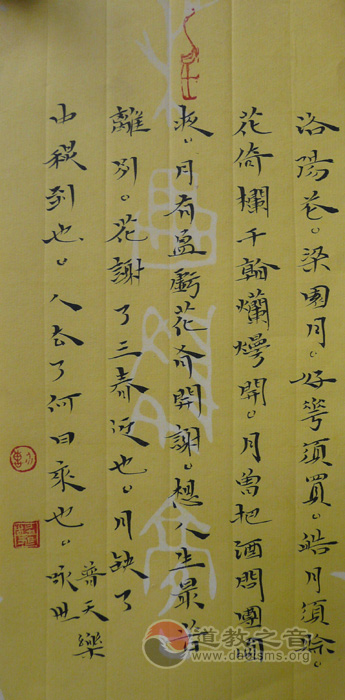 洛陽花。梁園月。好華須買。皓月須賒。
花倚欄干看爛熳開。月曾把酒問團圞
夜。月有盈虧花有開謝。想人生最苦
離別。花謝了三春近也。月缺了
中秋到也。人去了何日來也。
普天樂
咏世
道教之音
www.daoisms.org